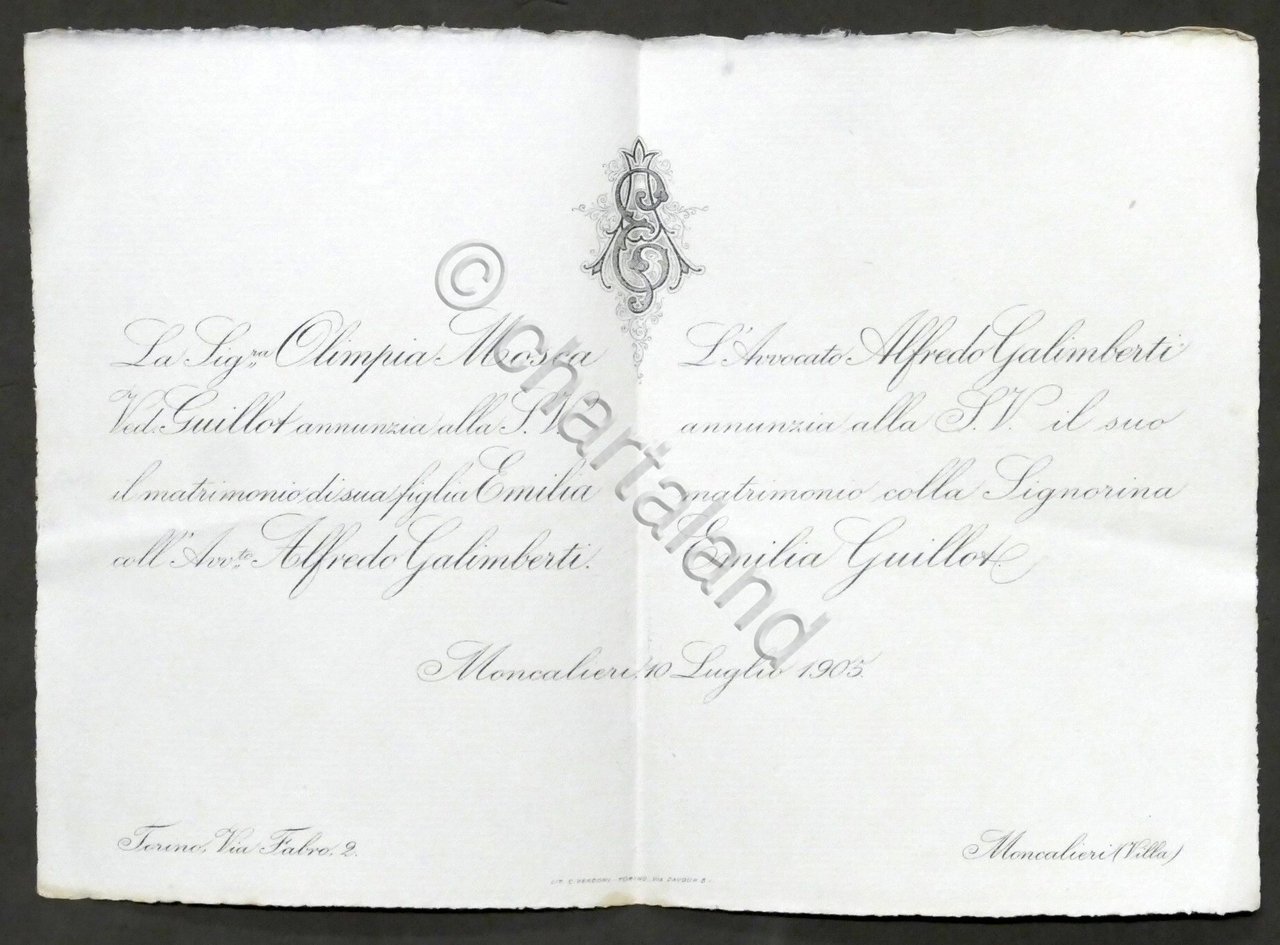 La Sig.ra Olimpia Mosca
Ved. Guillot annunzia alla S.V.
il matrimonio di sua figlia Emilia
coll'Avv.to Alfredo Galimberti.
L'Avvocato Alfredo Galimberti
annunzia alla S.V. il suo
matrimonio colla Signorina
Emilia Guillot.
Moncalieri, 10 Luglio 1905.
Torino, Via Fabro, 2.
Moncalieri (Villa)
LIT. C. VERDONI - TORINO, VIA CAVOUR 8 -
© chartaland